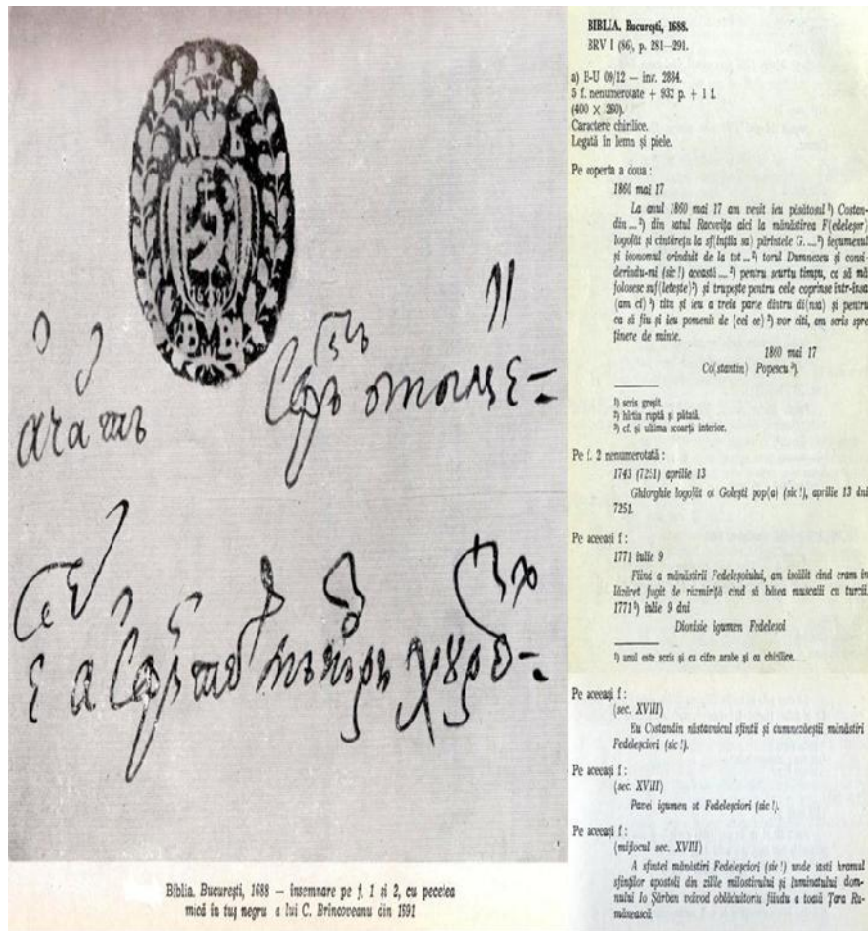 Biblia. București, 1688 — însemnare pe f. 1 si 2, cu pecetea
mică în tuș negru a lui C. Brîncoveanu din 1691
BIBLIA. București, 1688.
BRV I (86), p. 281—291.
a) E-U 09/12 — inv. 2884.
5 f. nenumerotate + 932 p. + 1 f.
(400 × 260).
Caractere chirilice.
Legată în lemn și piele.
Pe coperta a doua :
1860 mai 17
La anul 1860 mai 17 am venit ieu păsătosul ¹) Costan-
din ... ²) din satul Racovița aici la mănăstirea F(edeleșor)
logofăt și cîntărețu la sf(inția sa) părintele G. ... ²) iegumenul
și iconomul orînduit de la tot ... ²) torul Dumnezeu și consi-
derîndu-mi (sic !) această ... ²) pentru scurtu timpu, ca să mă
folosesc suf(letește) ²) și trupește pentru cele coprinse într-însa
(am ci) ²) tita și ieu a treia parte dintru di(nsa) și pentru
ca să fiu și ieu pomenit de (cei ce) ²) vor citi, am scris spre
ținere de minte.
1860 mai 17
Co(stantin) Popescu ³).
¹) scris greșit.
²) hîrtia ruptă și pătată.
³) cf. și ultima scoarță interior.
Pe f. 2 nenumerotată :
1743 (7251) aprilie 13
Ghiorghie logofăt ot Golești pop(a) (sic !), aprilie 13 dni
7251.
Pe aceeași f :
1771 iulie 9
Fiind a mănăstirii Fedeleșoiului, am iscălit cînd eram în
lăzăret fugit de răzmiriță cînd să bătea muscalii cu turcii.
1771 ¹) iulie 9 dni
Dionisie igumen Fedelesoi
¹) anul este scris și cu cifre arabe și cu chirilice.
Pe aceeași f :
(sec. XVIII)
Eu Costandin năstavnicul sfintii și dumnezeeștii mănăstiri
Fedeleșciori (sic !).
Pe aceeași f :
(sec. XVIII)
Pavel igumen ot Fedeleșciori (sic !).
Pe aceeași f :
(mijlocul sec. XVIII)
A sfintei mănăstiri Fedeleșciori (sic !) unde iasti hramul
sfinților apostoli din zilile milostivului și luminatului dom-
nului Io Șărban voivod oblăduitoriu fiindu a toată Țara Ru-
mânească.